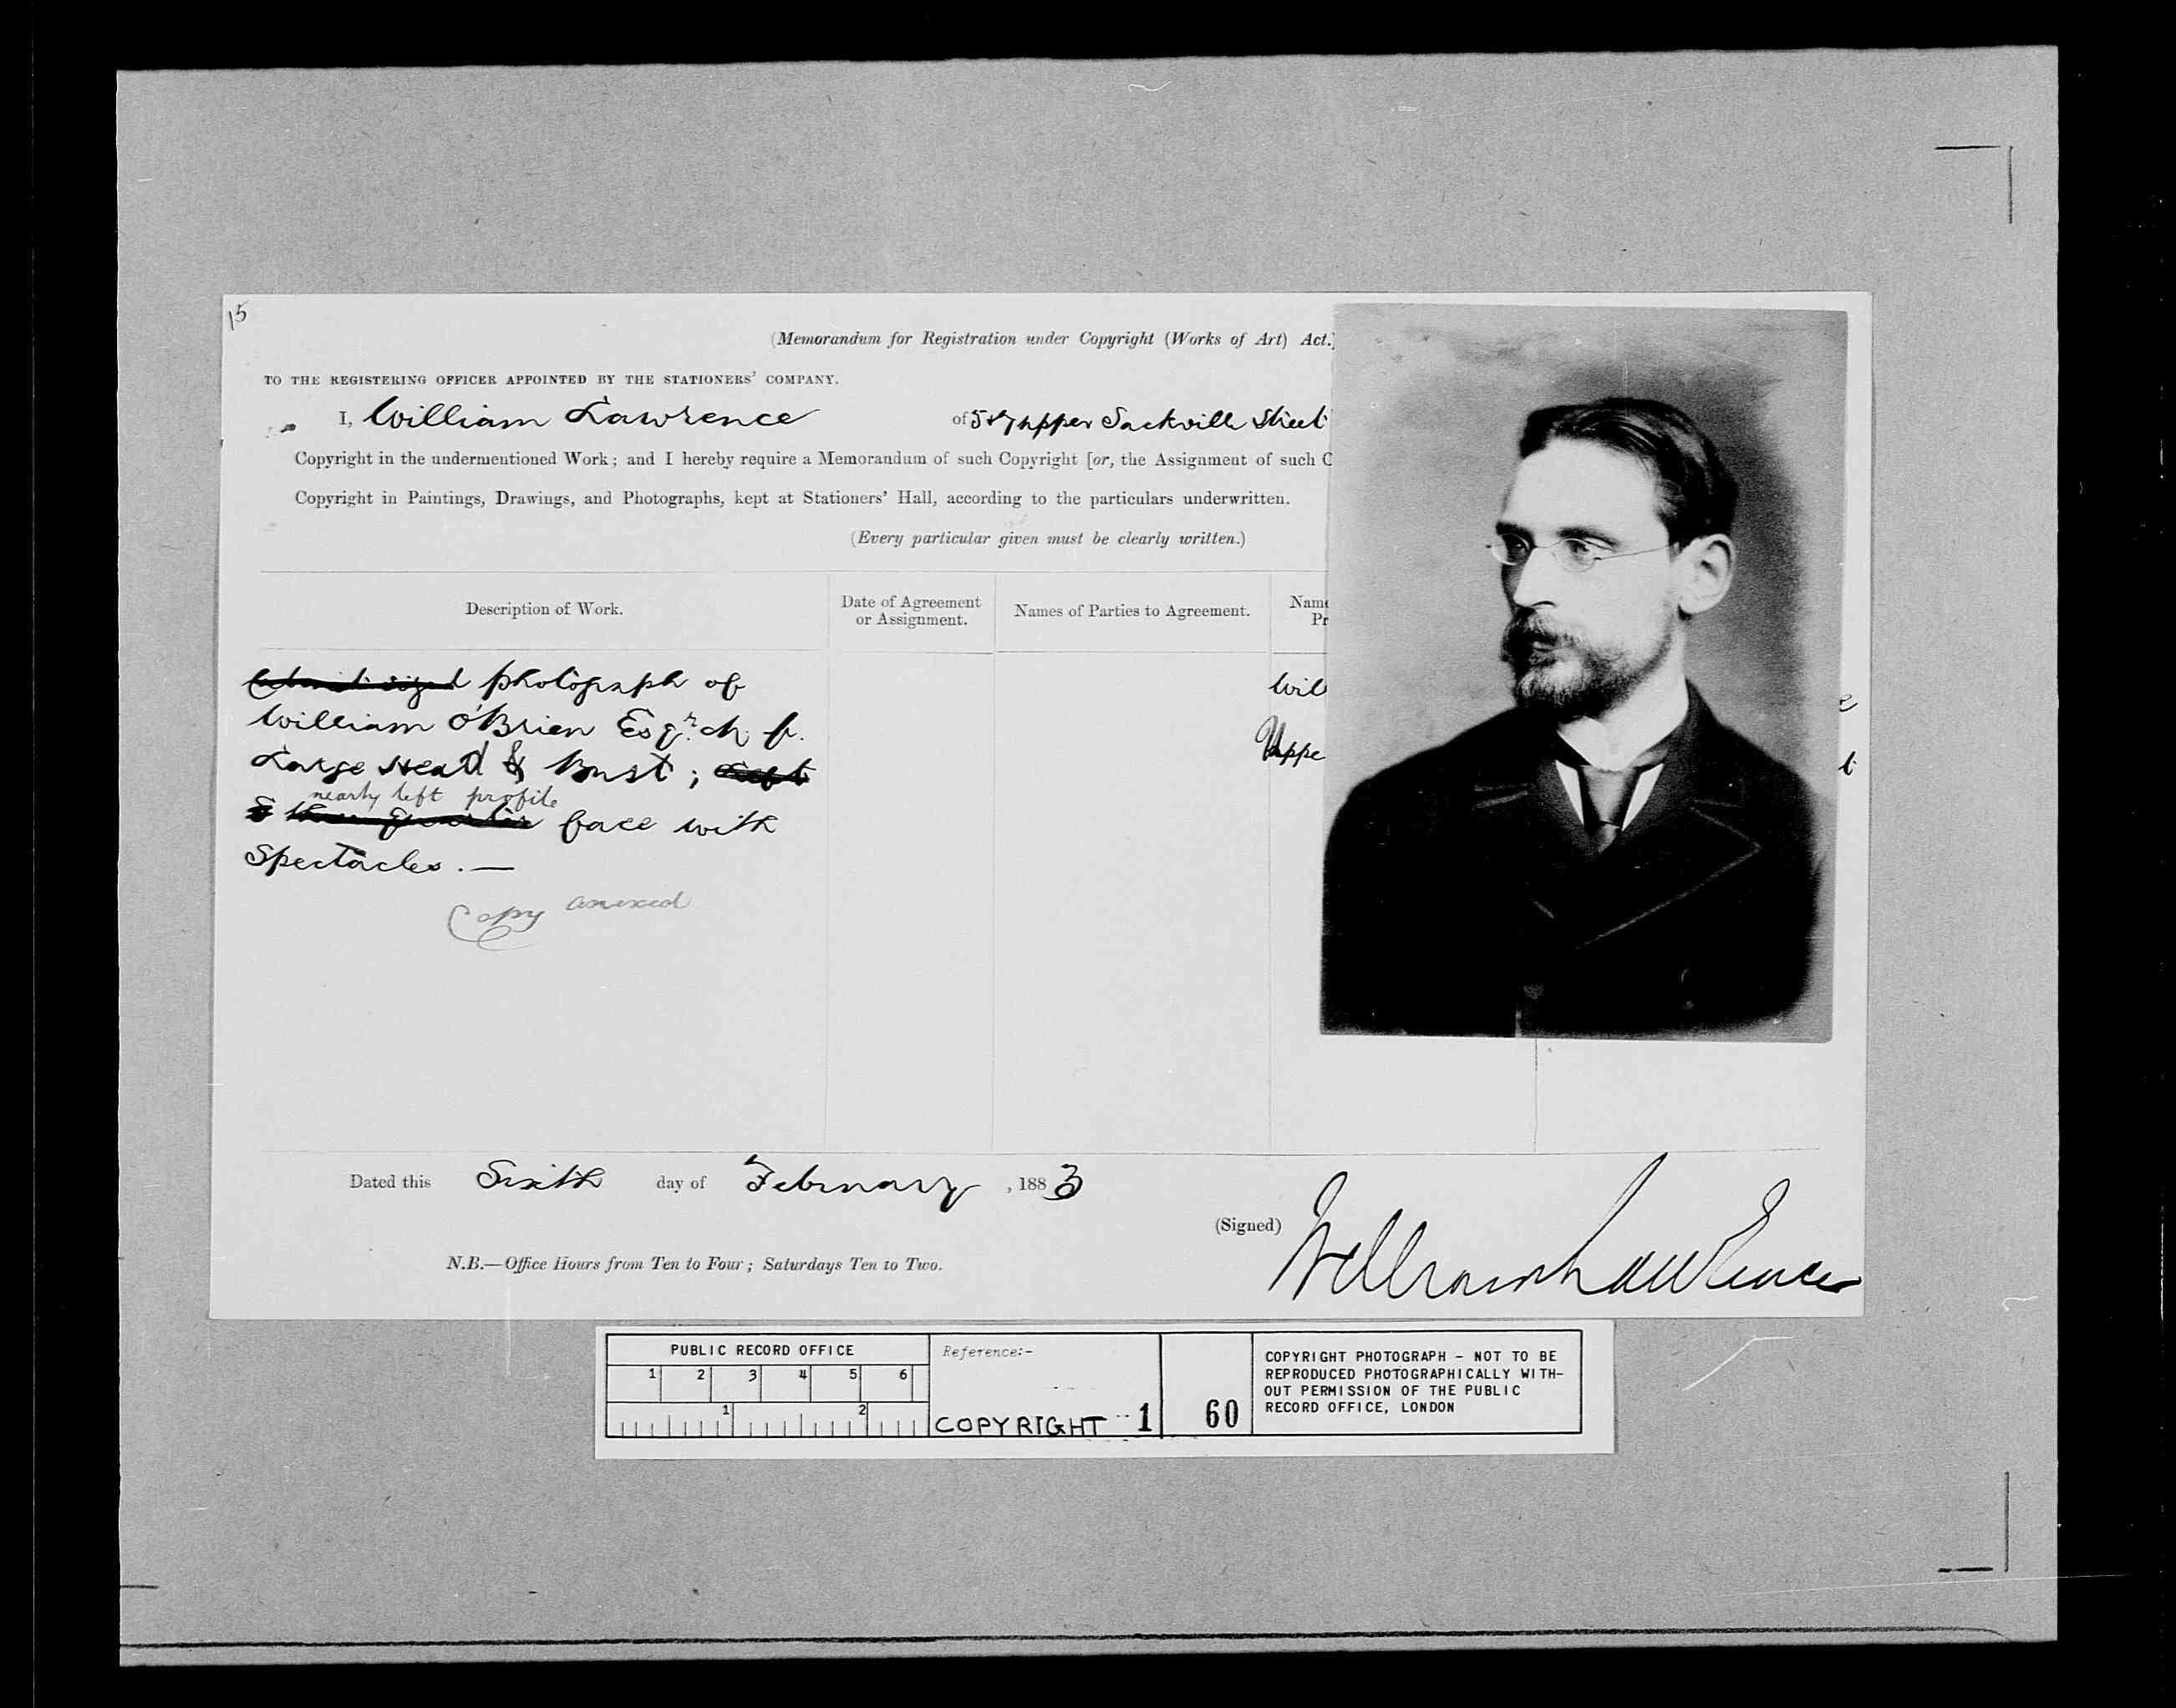 15
(Memorandum for Registration under Copyright (Works of Art) Act.)
TO THE REGISTERING OFFICER APPOINTED BY THE STATIONERS' COMPANY.
I, William Lawrence of 5 & 7 upper Sackville Street
Copyright in the undermentioned Work; and I hereby require a Memorandum of such Copyright [or, the Assignment of such C
Copyright in Paintings, Drawings, and Photographs, kept at Stationers' Hall, according to the particulars underwritten.
(Every particular given must be clearly written.)
Description of Work.
Date of Agreement
or Assignment.
Names of Parties to Agreement.
Name
Pr
photograph of
William O'Brien Esqr. M. P.
Large Head & Bust;
nearly left profile
face with
Spectacles. —
Copy annexed
Wil
Uppe
e
t
Dated this Sixth day of February, 1883
(Signed) William Lawrence
N.B.—Office Hours from Ten to Four; Saturdays Ten to Two.
PUBLIC RECORD OFFICE
1 2 3 4 5 6
1 2
Reference:-
COPYRIGHT 1
60
COPYRIGHT PHOTOGRAPH - NOT TO BE
REPRODUCED PHOTOGRAPHICALLY WITH-
OUT PERMISSION OF THE PUBLIC
RECORD OFFICE, LONDON